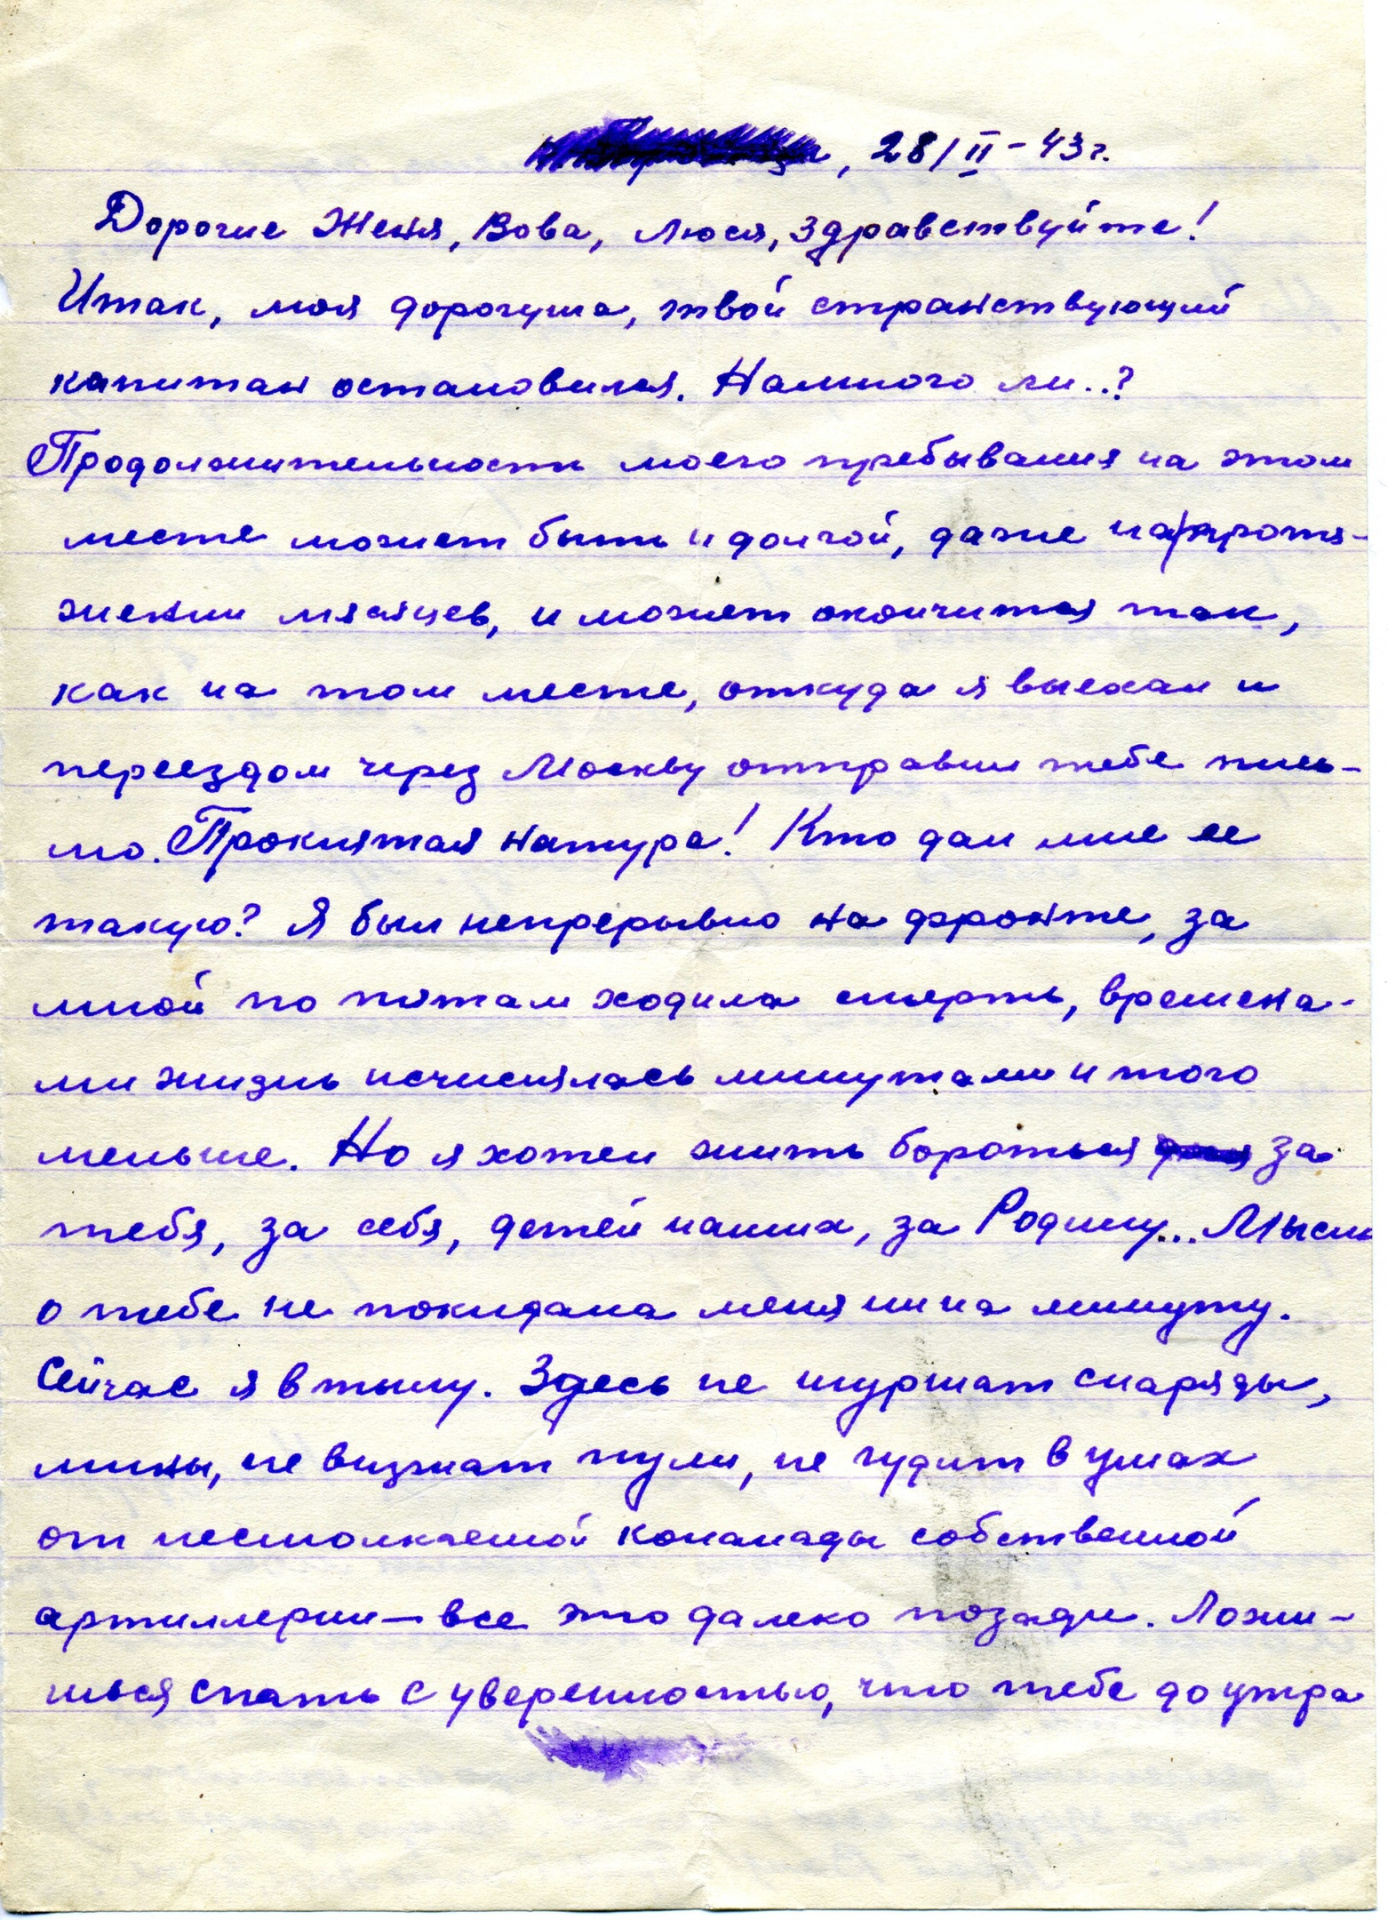 , 28/II-43г.
Дорогие Женя, Вова, Люся, здравствуйте!
Итак, моя дорогуша, твой странствующий
капитан остановился. Намного ли..?
Продолжительность моего пребывания на этом
месте может быть и долгой, даже на протя-
жении месяцев, и может окончится так,
как на том месте, откуда я выехал и
переездом через Москву отправил тебе пись-
мо. Проклятая натура! Кто дал мне ее
такую? Я был непрерывно на фронте, за
мной по пятам ходила смерть, времена-
ми жизнь исчислялась минутами и того
меньше. Но я хотел жить бороться за
тебя, за себя, детей наших, за Родину... Мысль
о тебе не покидала меня ни на минуту.
Сейчас я в тылу. Здесь не шуршат снаряды,
мины, не визжат пули, не гудит в ушах
от несмолкаемой кононады собственной
артиллерии — все это далеко позади. Ложи-
шься спать с уверенностью, что тебе до утра